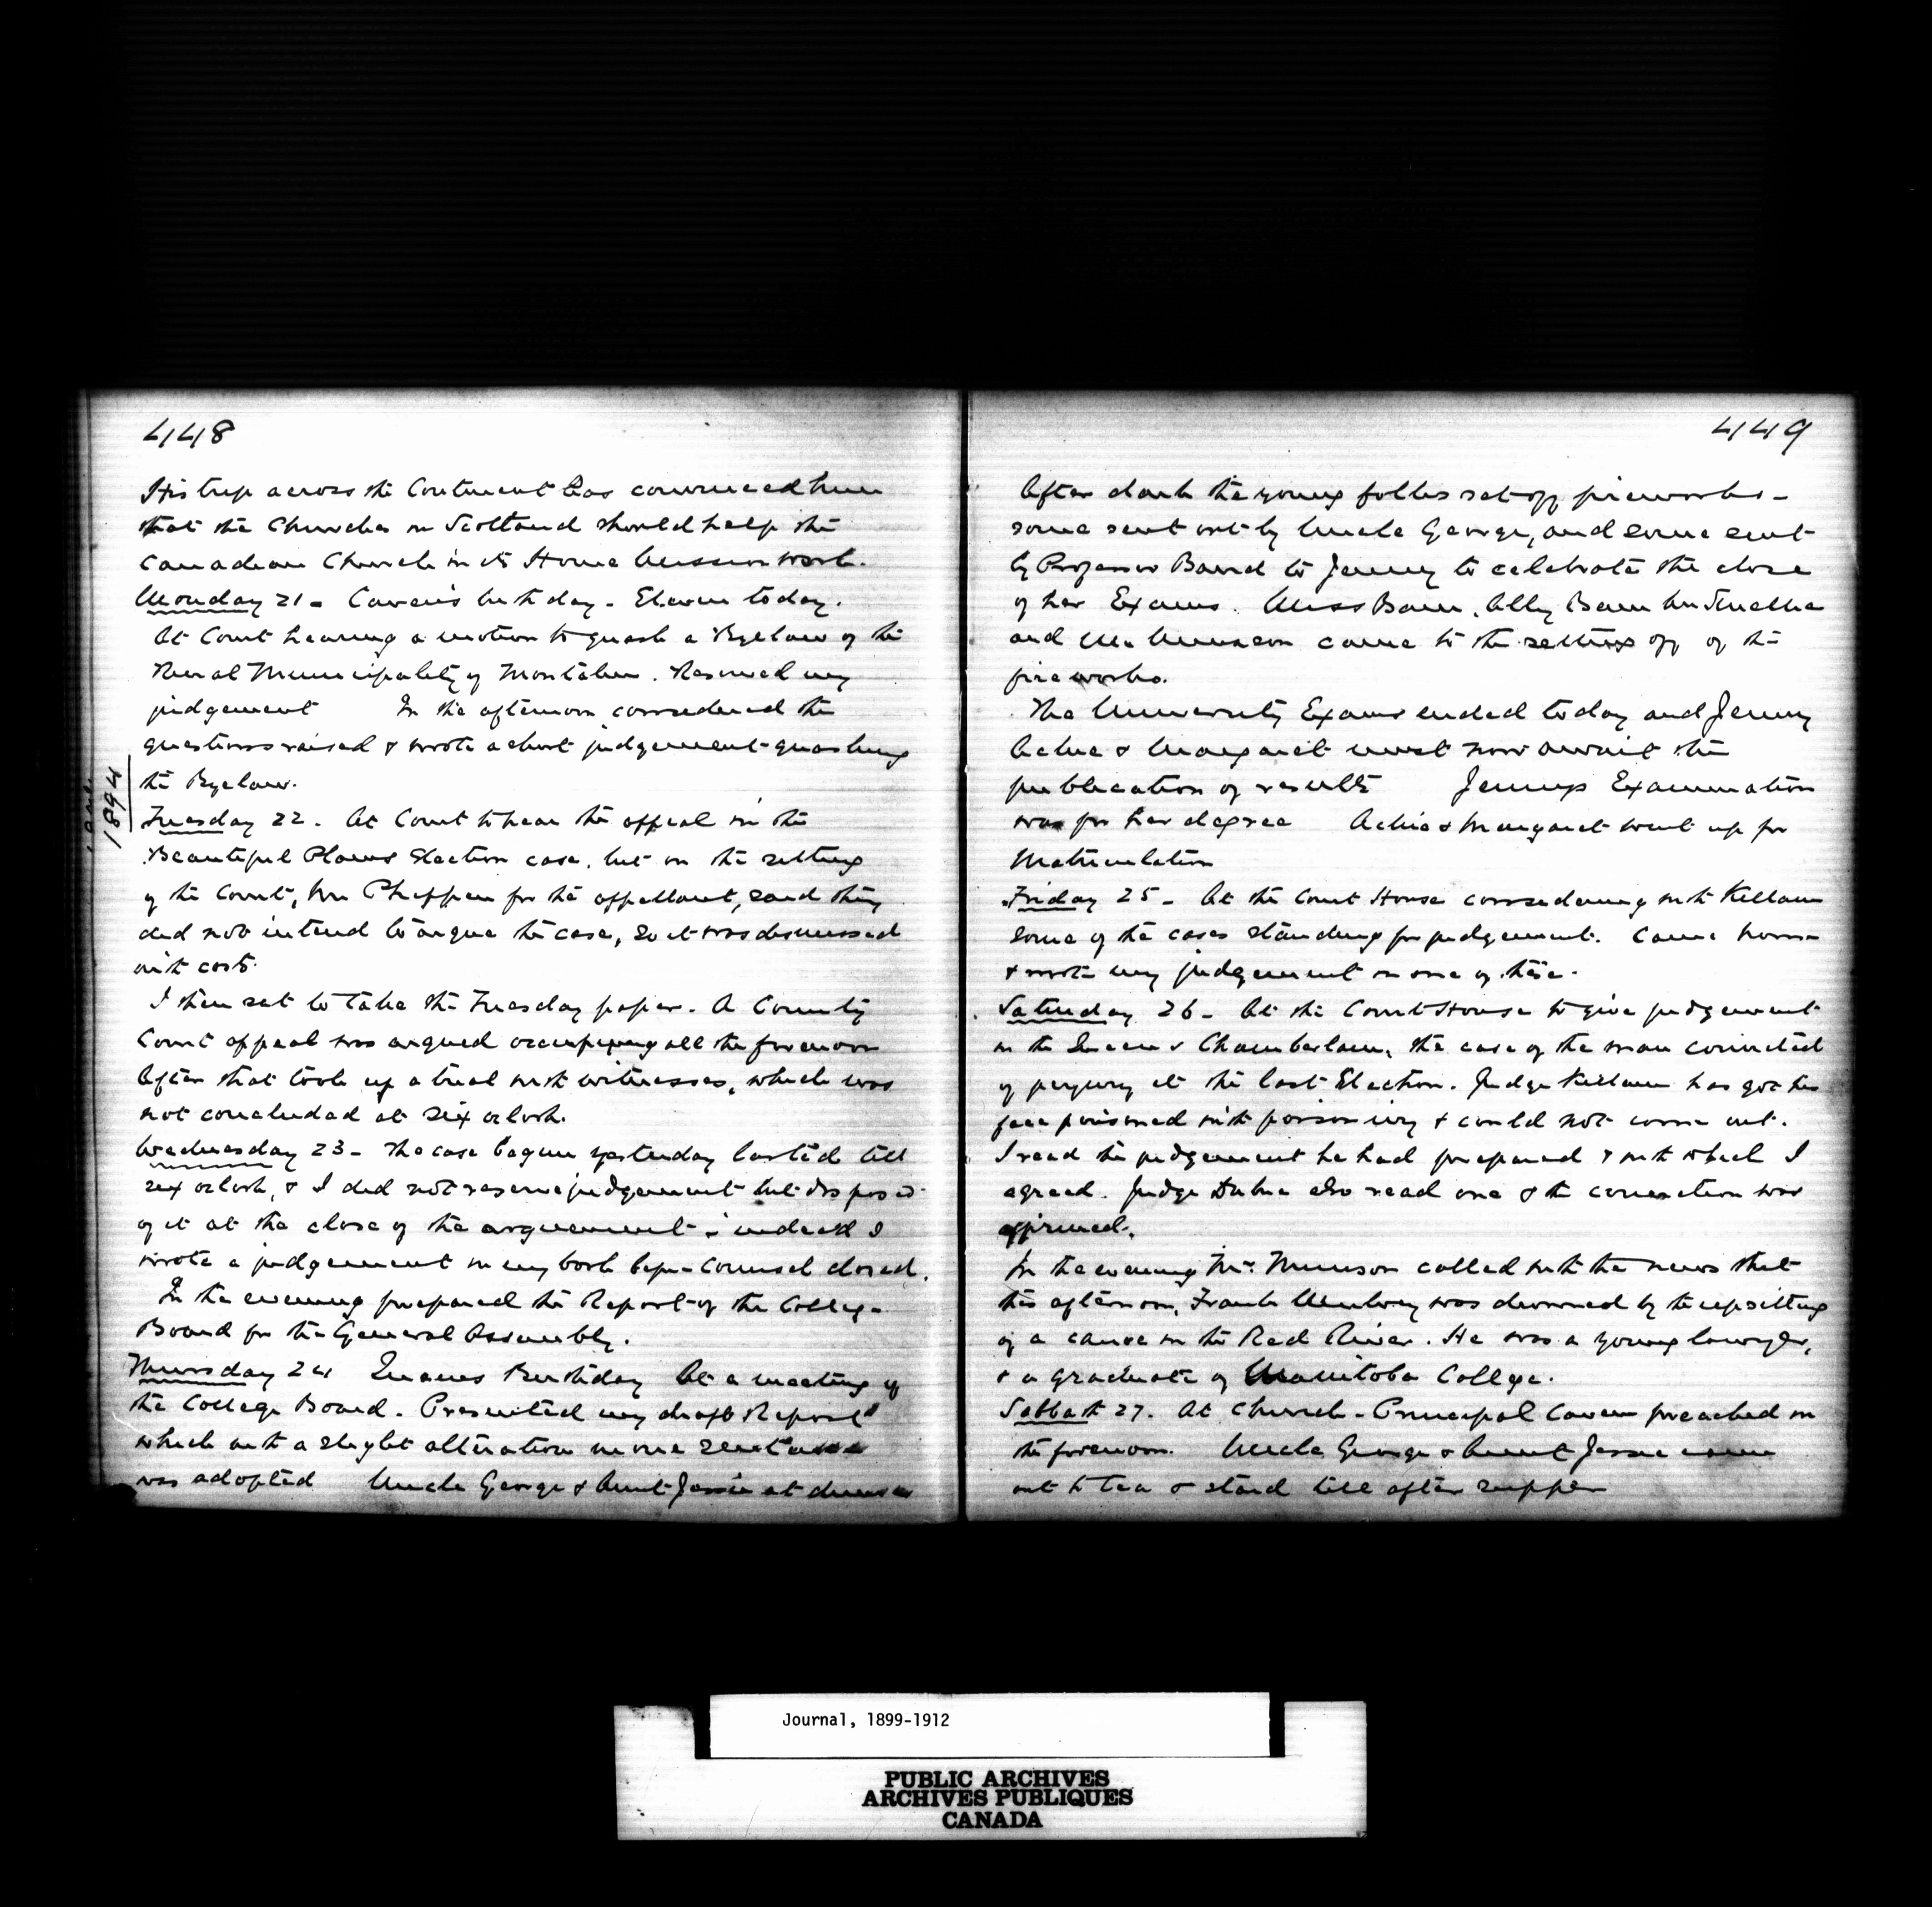 448
His trip across the Continent has convinced him
that the Churches in Scotland should help the
Canadian Church in its Home Mission work.
Monday 21 - Caven's birthday - Eleven today.
At Court hearing a motion to quash a Byelaw of the
Rural Municipality of Montcalm. Reserved my
judgement In the afternoon considered the
questions raised & wrote a short judgement quashing
the Byelaw.
1894
Tuesday 22. At Court to hear the appeal in the
Beautiful Plains Election case, but on the sitting
of the Court, Mr Phippen for the appellant, said they
did not intend to argue the case, so it was dismissed
with costs.
I then sat to take the Tuesday paper. A County
Court appeal was argued occupying all the forenoon
After that took up a trial with witnesses, which was
not concluded at six oclock.
Wednesday 23 - The case begun yesterday lasted till
six oclock, & I did not reserve judgement but disposed
of it at the close of the arguement - indeed I
wrote a judgement in my book before Counsel closed.
In the evening prepared the Report of the College
Board for the General Assembly.
Thursday 24 Queens Birthday At a meeting of
the College Board. Presented my draft Report
which with a slight alteration in one sentence
was adopted Uncle George & Aunt Jessie at dinner
449
After dark the young folks set off fireworks -
some sent out by Uncle George, and some sent
by Professor Baird to Jenny to celebrate the close
of her Exams. Miss Bain, Ally Bain
and Mr Munson came to the setting off of the
fireworks.
The University Exams ended today and Jenny
Achie & Margaret must now await the
publication of results Jennys Examination
was for her degree Achie & Margaret went up for
Matriculation
Friday 25 - At the Court House considering with Killam
some of the cases standing for judgement. Came home
& wrote my judgement in one of these.
Saturday 26 - At the Court House to give judgement
in the Queen v Chamberlain, the case of the man convicted
of perjury at the last Election. Judge Killam has got his
face poisoned with poison ivy & could not come out.
I read the judgement he had prepared & with which I
agreed. Judge Dubuc also read one & the conviction was
affirmed.
In the evening Mr. Munson called with the news that
this afternoon, Frank Mulvey was drowned by the upsetting
of a canoe in the Red River. He was a young lawyer,
& a graduate of Manitoba College.
Sabbath 27. At Church - Principal Caven preached in
the forenoon. Uncle George & Aunt Jessie came
out to tea & staid till after supper
Journal, 1899-1912
PUBLIC ARCHIVES
ARCHIVES PUBLIQUES
CANADA